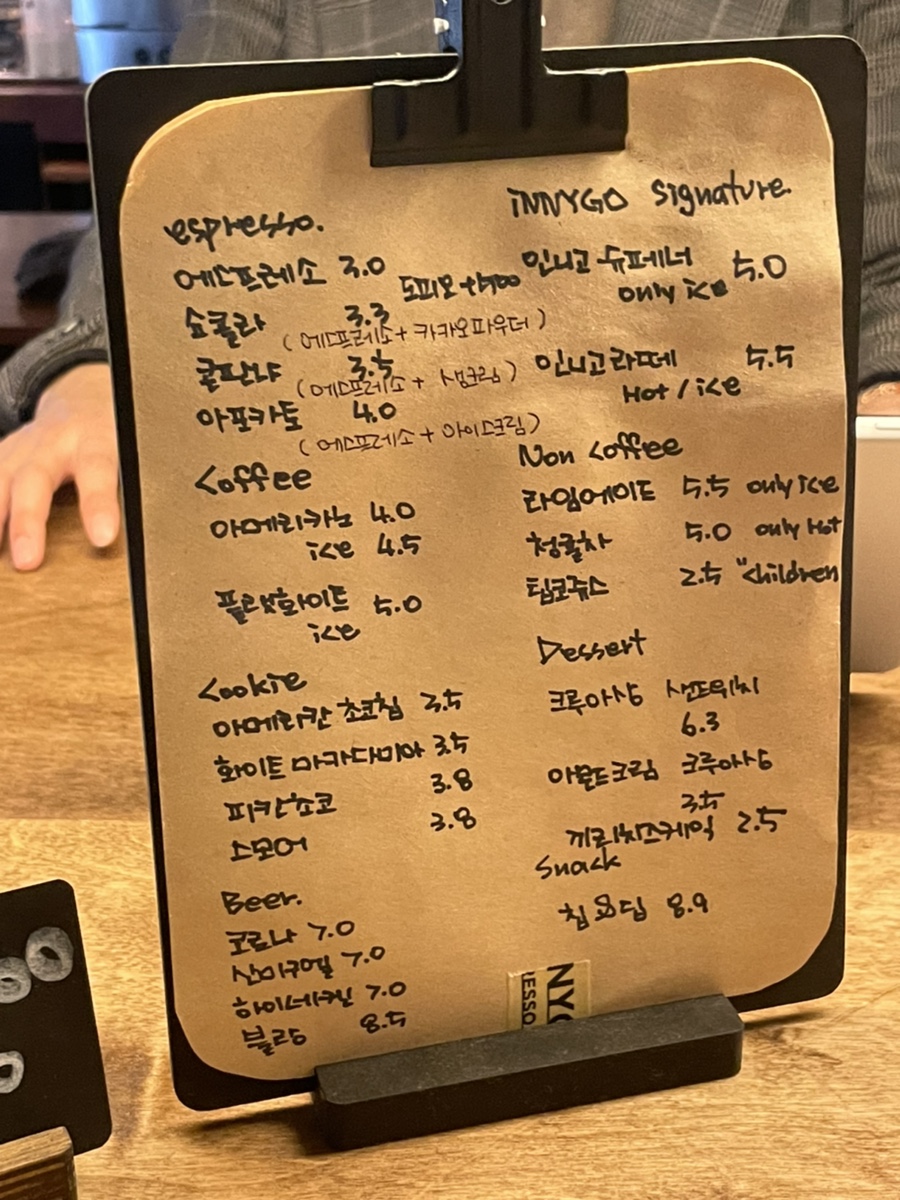 espresso.
에스프레소 3.0
도피오 +1500
쇼콜라 3.3
(에스프레소 + 카카오파우더)
콘판나 3.5
(에스프레소 + 생크림)
아포카토 4.0
(에스프레소 + 아이스크림)
Coffee
아메리카노 4.0
ice 4.5
플랫화이트 5.0
ice
Cookie
아메리칸 초코칩 3.5
화이트 마카다미아 3.5
피칸초코 3.8
스모어 3.8
Beer.
코로나 7.0
산미구엘 7.0
하이네켄 7.0
블랑 8.5
iNNYGO Signature.
인니고 슈페너 5.0
only ice
인니고라떼 5.5
Hot / ice
Non Coffee
라임에이드 5.5 only ice
청귤차 5.0 only Hot
팁코쥬스 2.5 "children
Dessert
크루아상 샌드위치
6.3
아몬드크림 크루아상
3.5
끼리치즈케익 2.5
Snack
칩&딥 8.9